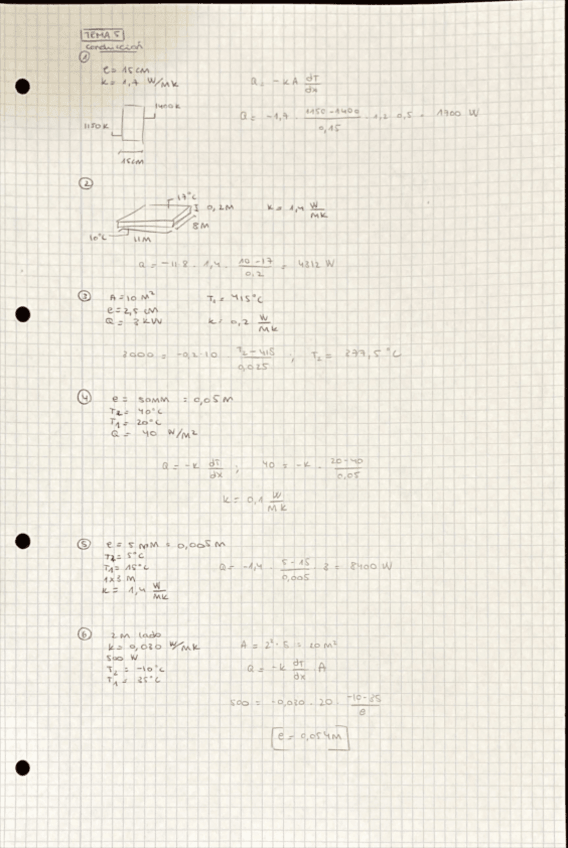 TEMA 5
conducción
①
e = 15 cm
k = 1,7 W/mK
Q = -kA dT/dx
1400K
1150K
15cm
Q = -1,7 · (1150 - 1400)/0,15 · 1,2 · 0,5 = 1700 W
②
17°C
0,2M
8M
10°C
11M
k = 1,4 W/MK
Q = -11·8 · 1,4 · (10-17)/0.2 = 4312 W
③ A = 10 M² T₁ = 415°C
e = 2,5 cM
Q = 3 kW k = 0,2 W/MK
3000 = -0,2·10 (T₂-415)/0,025 ; T₂ = 377,5 °C
④ e = 50MM = 0,05 M
T₂ = 40°C
T₁ = 20°C
Q = 40 W/M²
Q = -k dT/dx ; 40 = -k · (20-40)/0,05
k = 0,1 W/MK
⑤ e = 5 MM = 0,005 M
T₂ = 5°C
T₁ = 15°C
1x3 M
k = 1,4 W/MK
Q = -1,4 · (5-15)/0,005 · 3 = 8400 W
⑥ 2M lado
k = 0,030 W/MK
500 W
T₂ = -10°C
T₁ = 35°C
A = 2²·5 = 20 M²
Q = -k dT/dx A
500 = -0,030 · 20 · (-10-35)/e
e = 0,054M